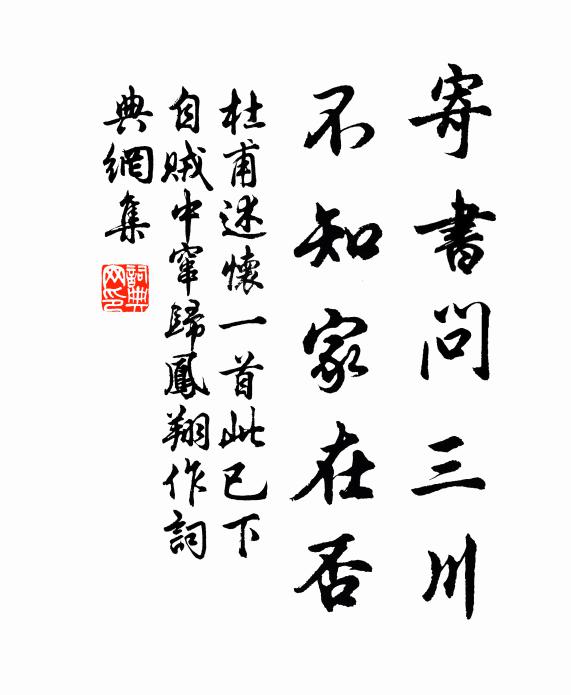 寄書問三川
不知家在否
杜甫述懷一首此已下
自賊中窜歸鳳翔作詞
典網集
詞典网印